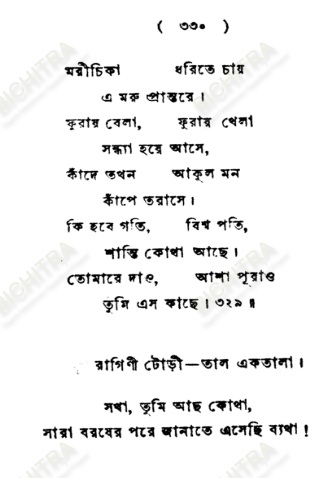 ( ৩৩০ )
মরীচিকা ধরিতে চায়
এ মরু প্রান্তরে ।
ফুরায় বেলা, ফুরায় খেলা
সন্ধ্যা হয়ে আসে,
কাঁদে তখন আকুল মন
কাঁপে তরাসে ।
কি হবে গতি, বিশ্ব পতি,
শান্তি কোথা আছে ।
তোমারে দাও, আশা পূরাও
তুমি এস কাছে । ৩২৯ ॥
রাগিণী টোড়ী—তাল একতালা ।
সখা, তুমি আছ কোথা,
সারা বরষের পরে জানাতে এসেছি ব্যথা !
BICHITRA